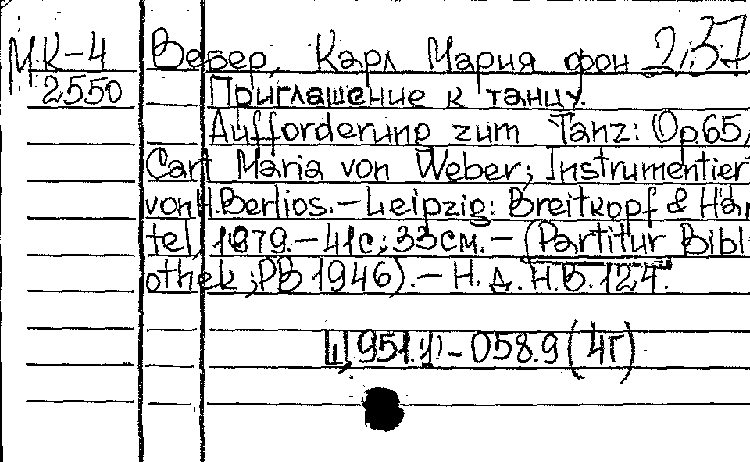 МК-4 Вебер, Карл Мария фон 2,37
2550 Приглашение к танцу.
Aufforderung zum Tanz: Op.65,
Carl Maria von Weber; Instrumentier
von H. Berlios.-Leipzig: Breitkopf & Här
tel, 1879.-41с; 33см.-(Partitur Bibl
othek; PB 1946).-Н.д. Н.В.124.
Щ951.1)-058.9(4Г)